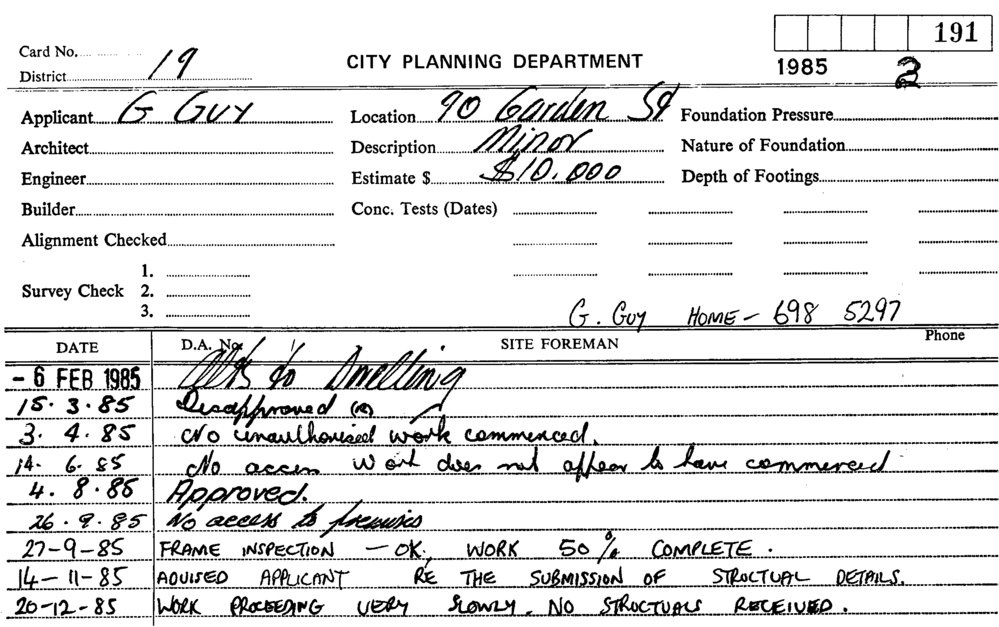 191
Card No.
District 19
CITY PLANNING DEPARTMENT
1985 2
Applicant G GUY
Location 90 Garden St
Foundation Pressure
Architect
Description Minor
Nature of Foundation
Engineer
Estimate $ $10.000
Depth of Footings
Builder
Conc. Tests (Dates)
Alignment Checked
Survey Check 1.
2.
3.
G. GUY HOME - 698 5297
DATE D.A. No. SITE FOREMAN Phone
- 6 FEB 1985 Alts to Dwelling
15. 3. 85 Disapproved (R)
3. 4. 85 No unauthorised work commenced.
14. 6. 85 No access work does not appear to have commenced
4. 8. 85 Approved.
26. 9. 85 No access to premises
27-9-85 FRAME INSPECTION - OK, WORK 50% COMPLETE.
14-11-85 ADVISED APPLICANT RE THE SUBMISSION OF STRUCTUAL DETAILS.
20-12-85 WORK PROCEEDING VERY SLOWLY. NO STRUCTUALS RECEIVED.